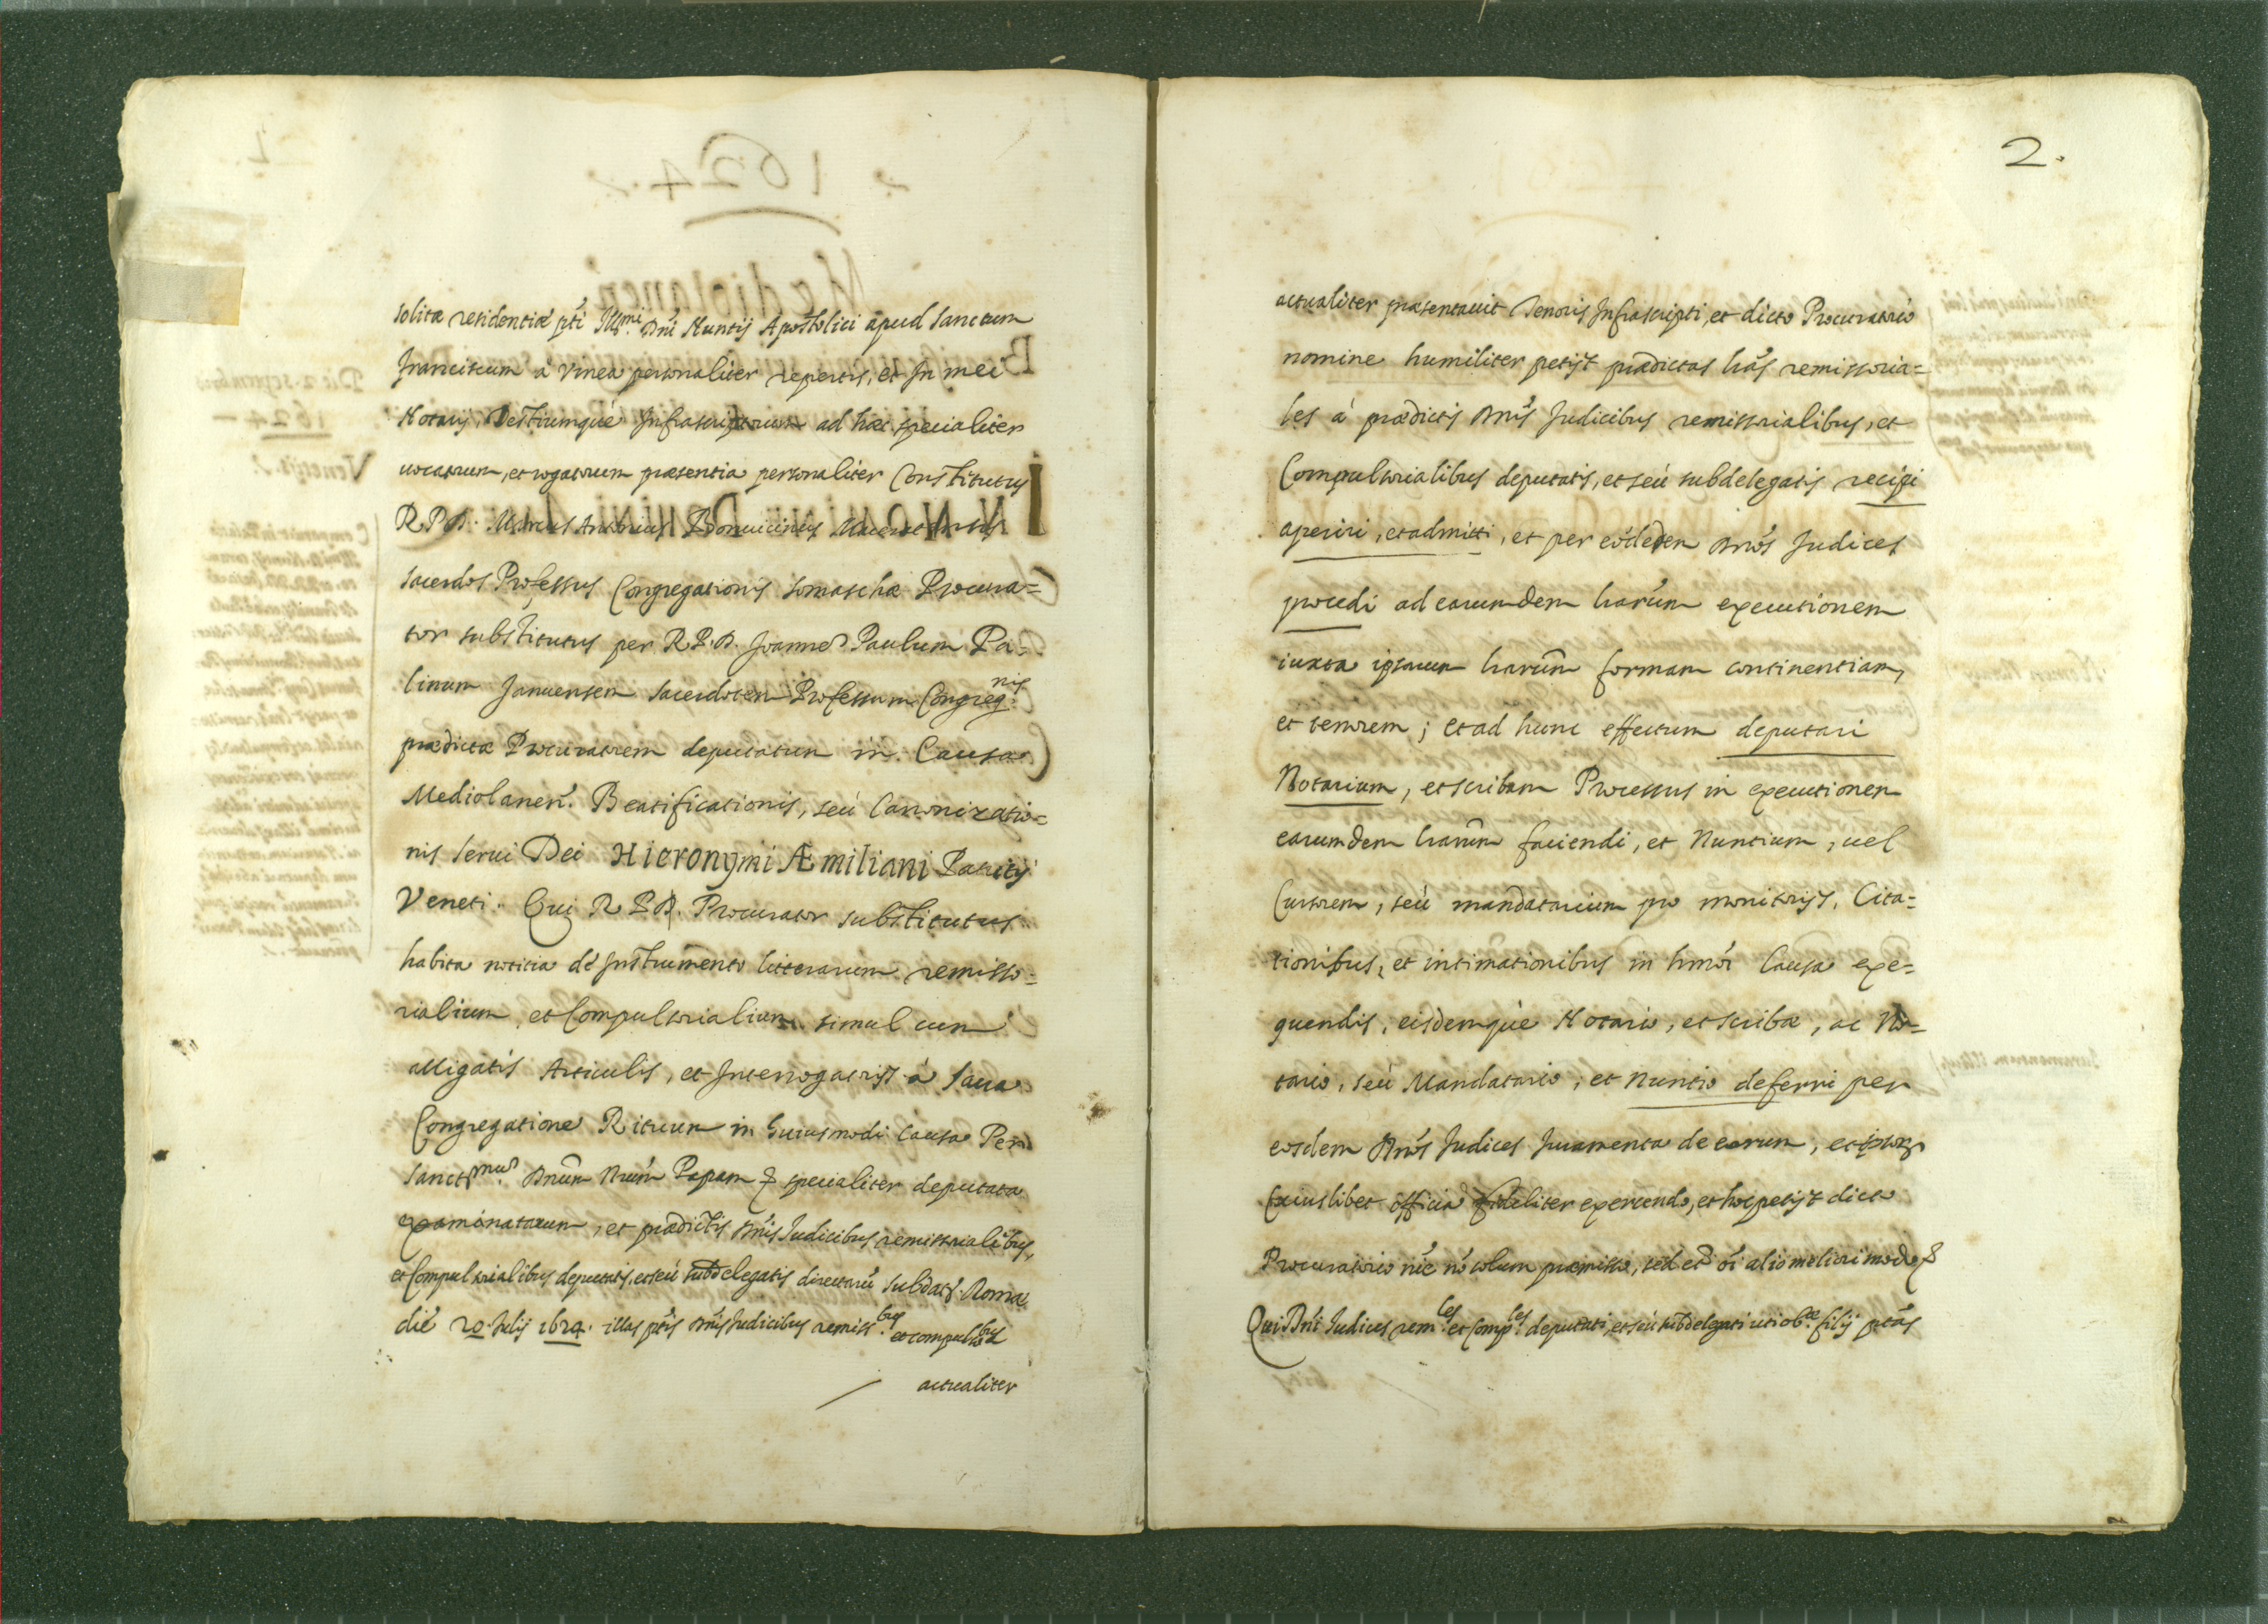 solitæ residentiæ pti Illmi Dni Nuntij Apostolici apud Sanctum
Franciscum à Vinea personaliter repertis, et In mei
Notarij, Testiumque Infrascriptorum ad hæc specialiter
uocatorum, et rogatorum præsentia personaliter Constitutus
R.P.D. Marcus Antonius
Sacerdos Professus Congregationis Somaschæ Procura=
tor substitutus per R.P.D. Joannem Paulum Pa=
linum Januensem Sacerdotem Professum Congreg.nis
prædictæ Procuratorem deputatum in Causa
Mediolanen. Beatificationis, seù Canonizatio=
nis serui Dei Hieronymi Æmiliani Patritij
Veneti. Qui R.P.D. Procurator substitutus
habita notitia de Instrumento litterarum remisso=
rialium, et Compulsorialium simul cum
alligatis Articulis, et Interrogatorijs à Sacra
Congregatione Rituum in huiusmodi Causa Per
Sanctmum Dnum Nrum Papam & specialiter deputata
examinatarum, et prædictis Dnis Judicibus remissorialibus,
et Compulsorialibus deputatis, et seù subdelegatis directarū sub dat. Romæ
die 20. Julij 1624. illas ptis Dnis Judicibus remiss.bus et compulss.bus
actualiter
2.
actualiter præsentauit Tenoris Infrascripti, et dicto Procuratorio
nomine humiliter petijt prædictas lrās remissoria=
les à prædictis Dnis Judicibus remissorialibus, et
Compulsorialibus deputatis, et seù subdelegatis recipi
aperiri, et admitti, et per eosdem Dnos Judices
procedi ad earumdem lrarum executionem
iuxta ipsarum lrarum formam continentiam,
et tenorem; et ad hunc effectum deputari
Notarium, et scribam Processus in executionem
earumdem lrarum faciendi, et Nuntium, uel
Cursorem, seù mandatarium pro monitorijs, Cita=
tionibus, et intimationibus in hmōi Causa exe=
quendis, eisdemque Notario, et scribæ, ac No=
tario, seù Mandatario, et Nuntio deferri per
eosdem Dnos Judices Juramenta de eorum, et ipsor.
Cuiuslibet officio fideliter exercendo, et hoc petijt dicto
Procuratorio nōe nō solum præmisso, sed et oi alio meliori modo &
Qui Dni Judices rem.les et Comp.les deputati, et seù subdelegati uti ob.æ filij ptās